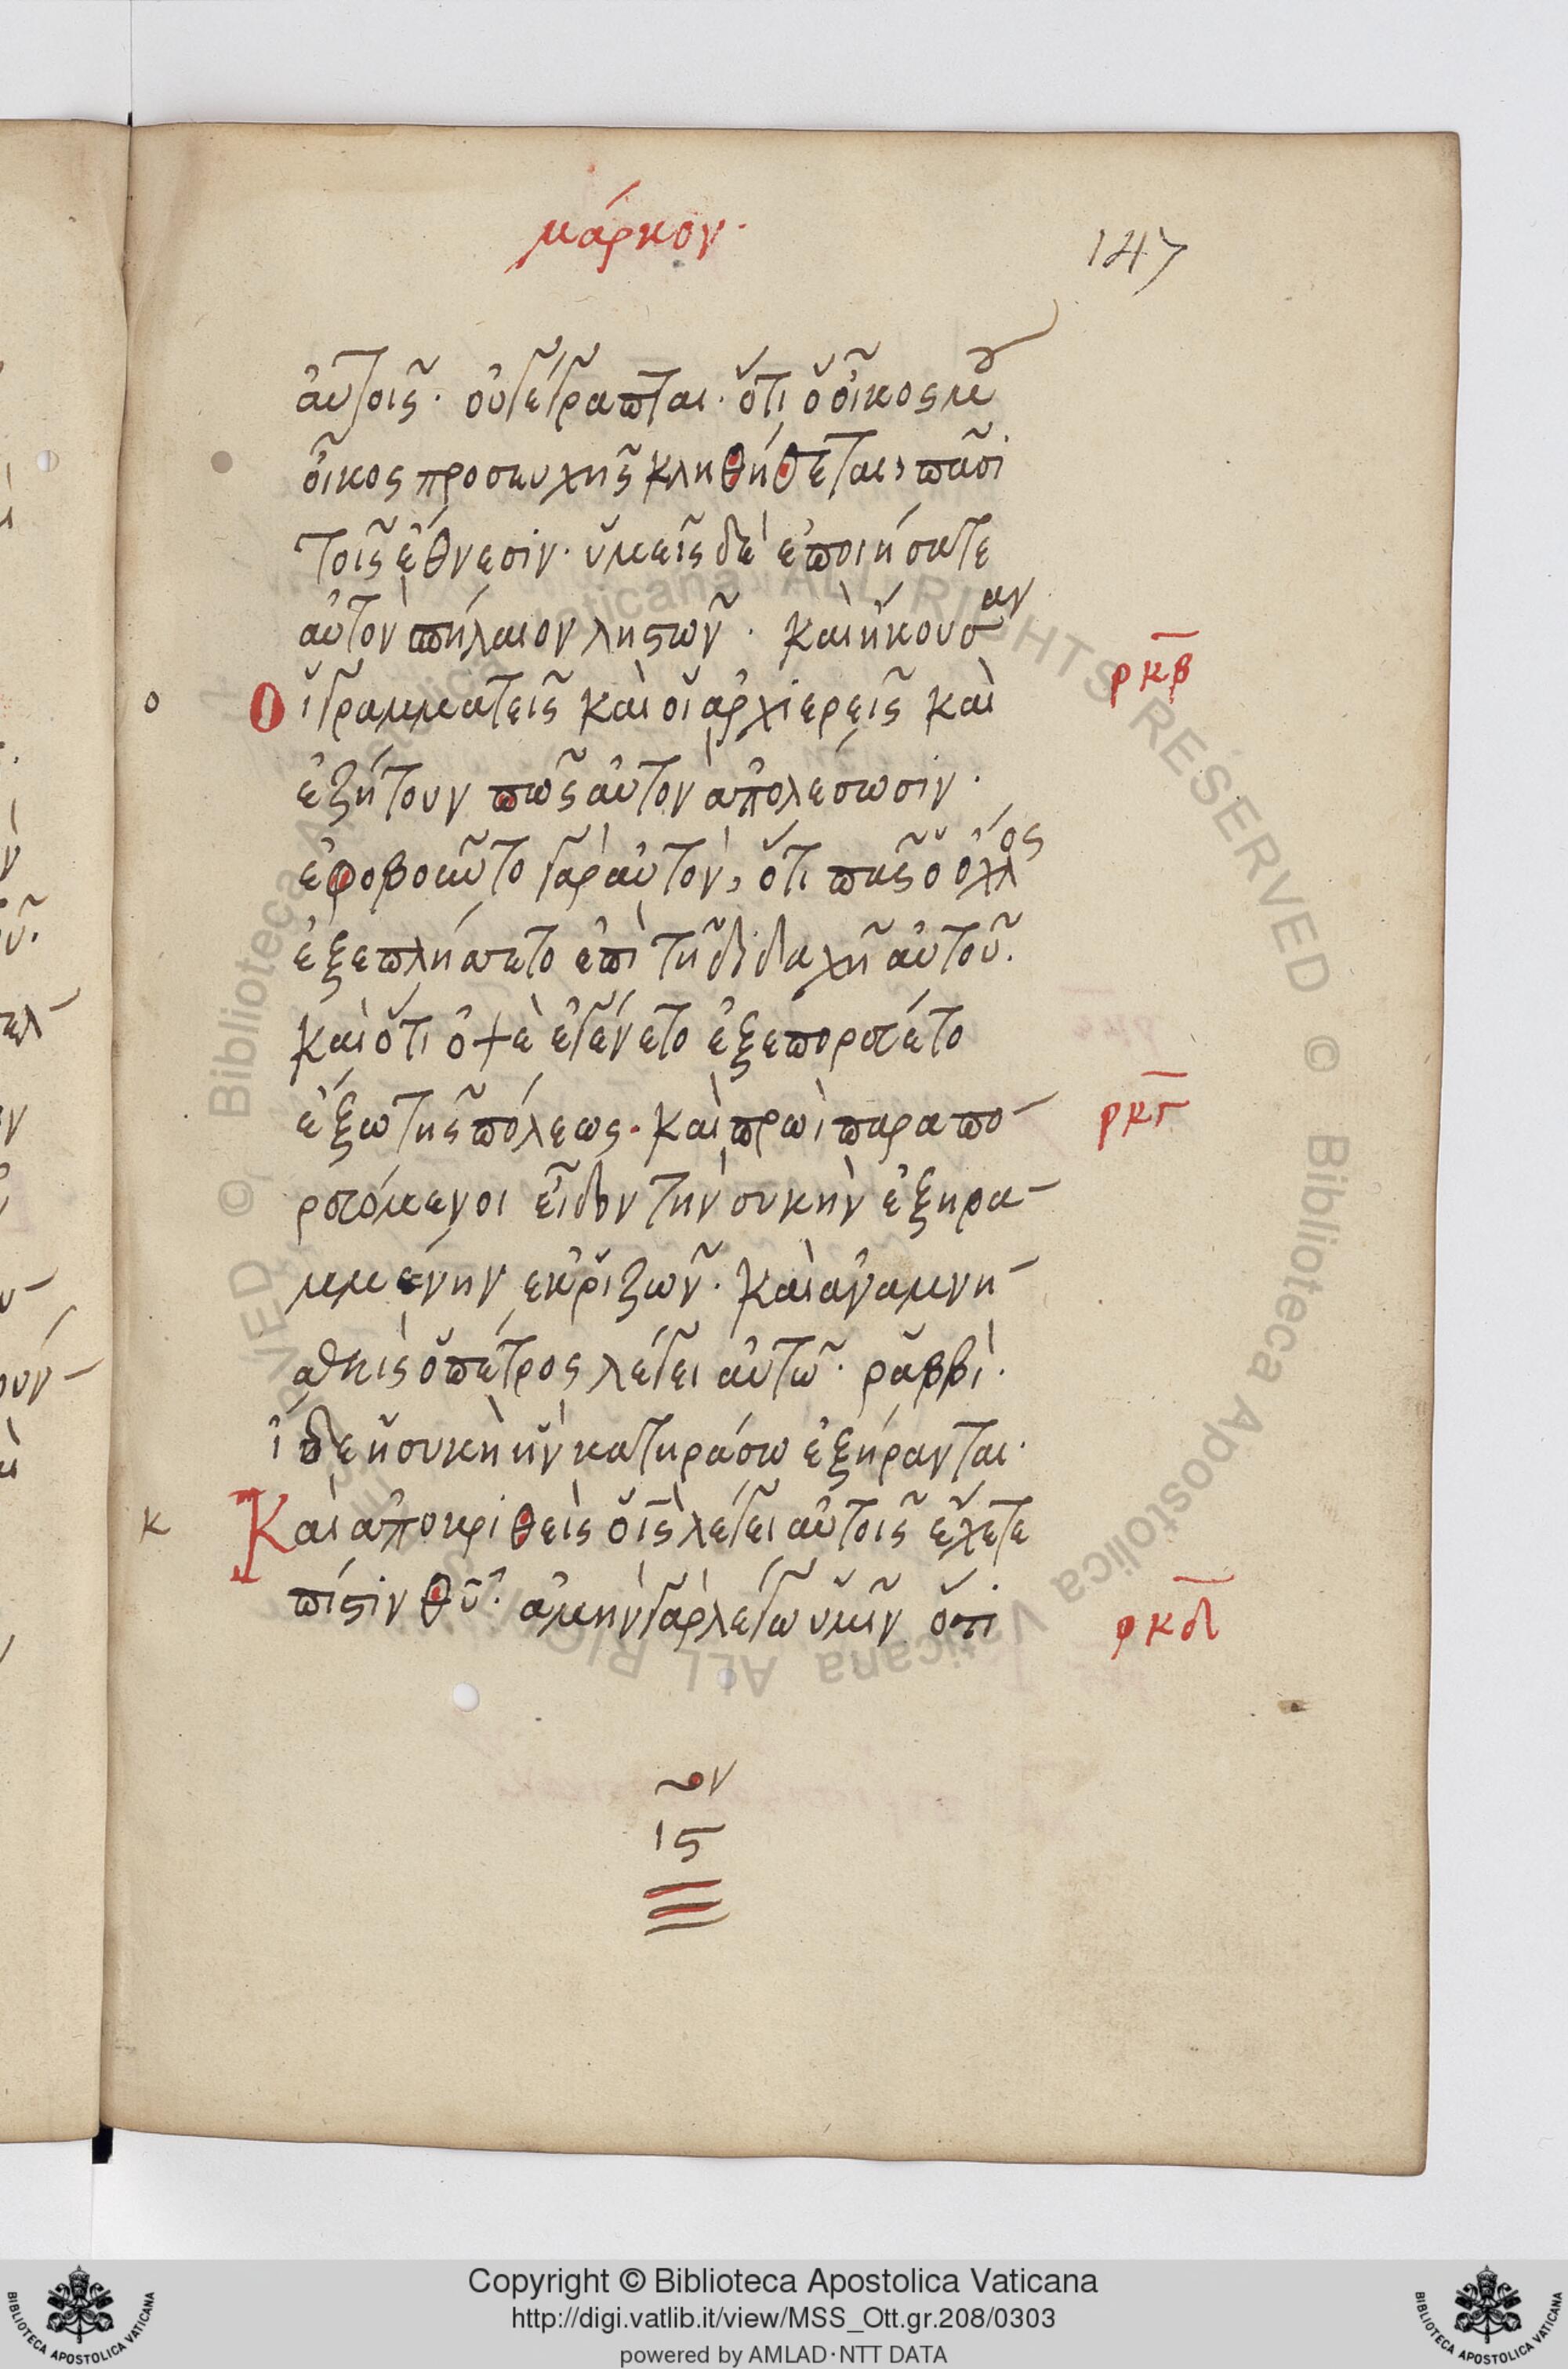 μάρκον·
147
αὐτοῖς· οὐ γέγραπται· ὅτι ὁ οἶκός μου
οἶκος προσευχῆς κληθήθεται, πᾶσι
τοῖς ἔθνεσιν· ὑμεῖς δὲ ἐποιήσατε
αὐτὸν σπήλαιον ληστῶν· καὶ ἤκουσαν
ρκβ
ο
Οἱ γραμματεῖς καὶ οἱ ἀρχιερεῖς καὶ
ἐζήτουν πῶς αὐτὸν ἀπολέσωσιν·
ἐφοβοῦντο γὰρ αὐτὸν, ὅτι πᾶς ὁ ὄχλος
ἐξεπλήσσετο ἐπὶ τῆ διδαχῆ αὐτοῦ.
καὶ ὅτι ὀψὲ ἐγένετο ἐξεπορεύετο
ἔξω τῆς πόλεως· καὶ πρωὶ παραπο-
ρκγ
ρευόμενοι εἶδον τὴν συκὴν ἐξηρα-
μμένην ἐκ ῥιζῶν· καὶ ἀναμνη-
σθεὶς ὁ πέτρος λέγει αὐτῶ· ῥαββὶ·
ἴδε ἡ συκὴ ἣν κατηράσω ἐξήρανται·
κ
Καὶ ἀποκριθεὶς ὁ ις λέγει αὐτοῖς ἔχετε
πίστιν θυ· ἀμὴν γὰρ λέγω ὑμῖν ὅτι
ρκδ
ον
ις
Copyright © Biblioteca Apostolica Vaticana
http://digi.vatlib.it/view/MSS_Ott.gr.208/0303
powered by AMLAD·NTT DATA